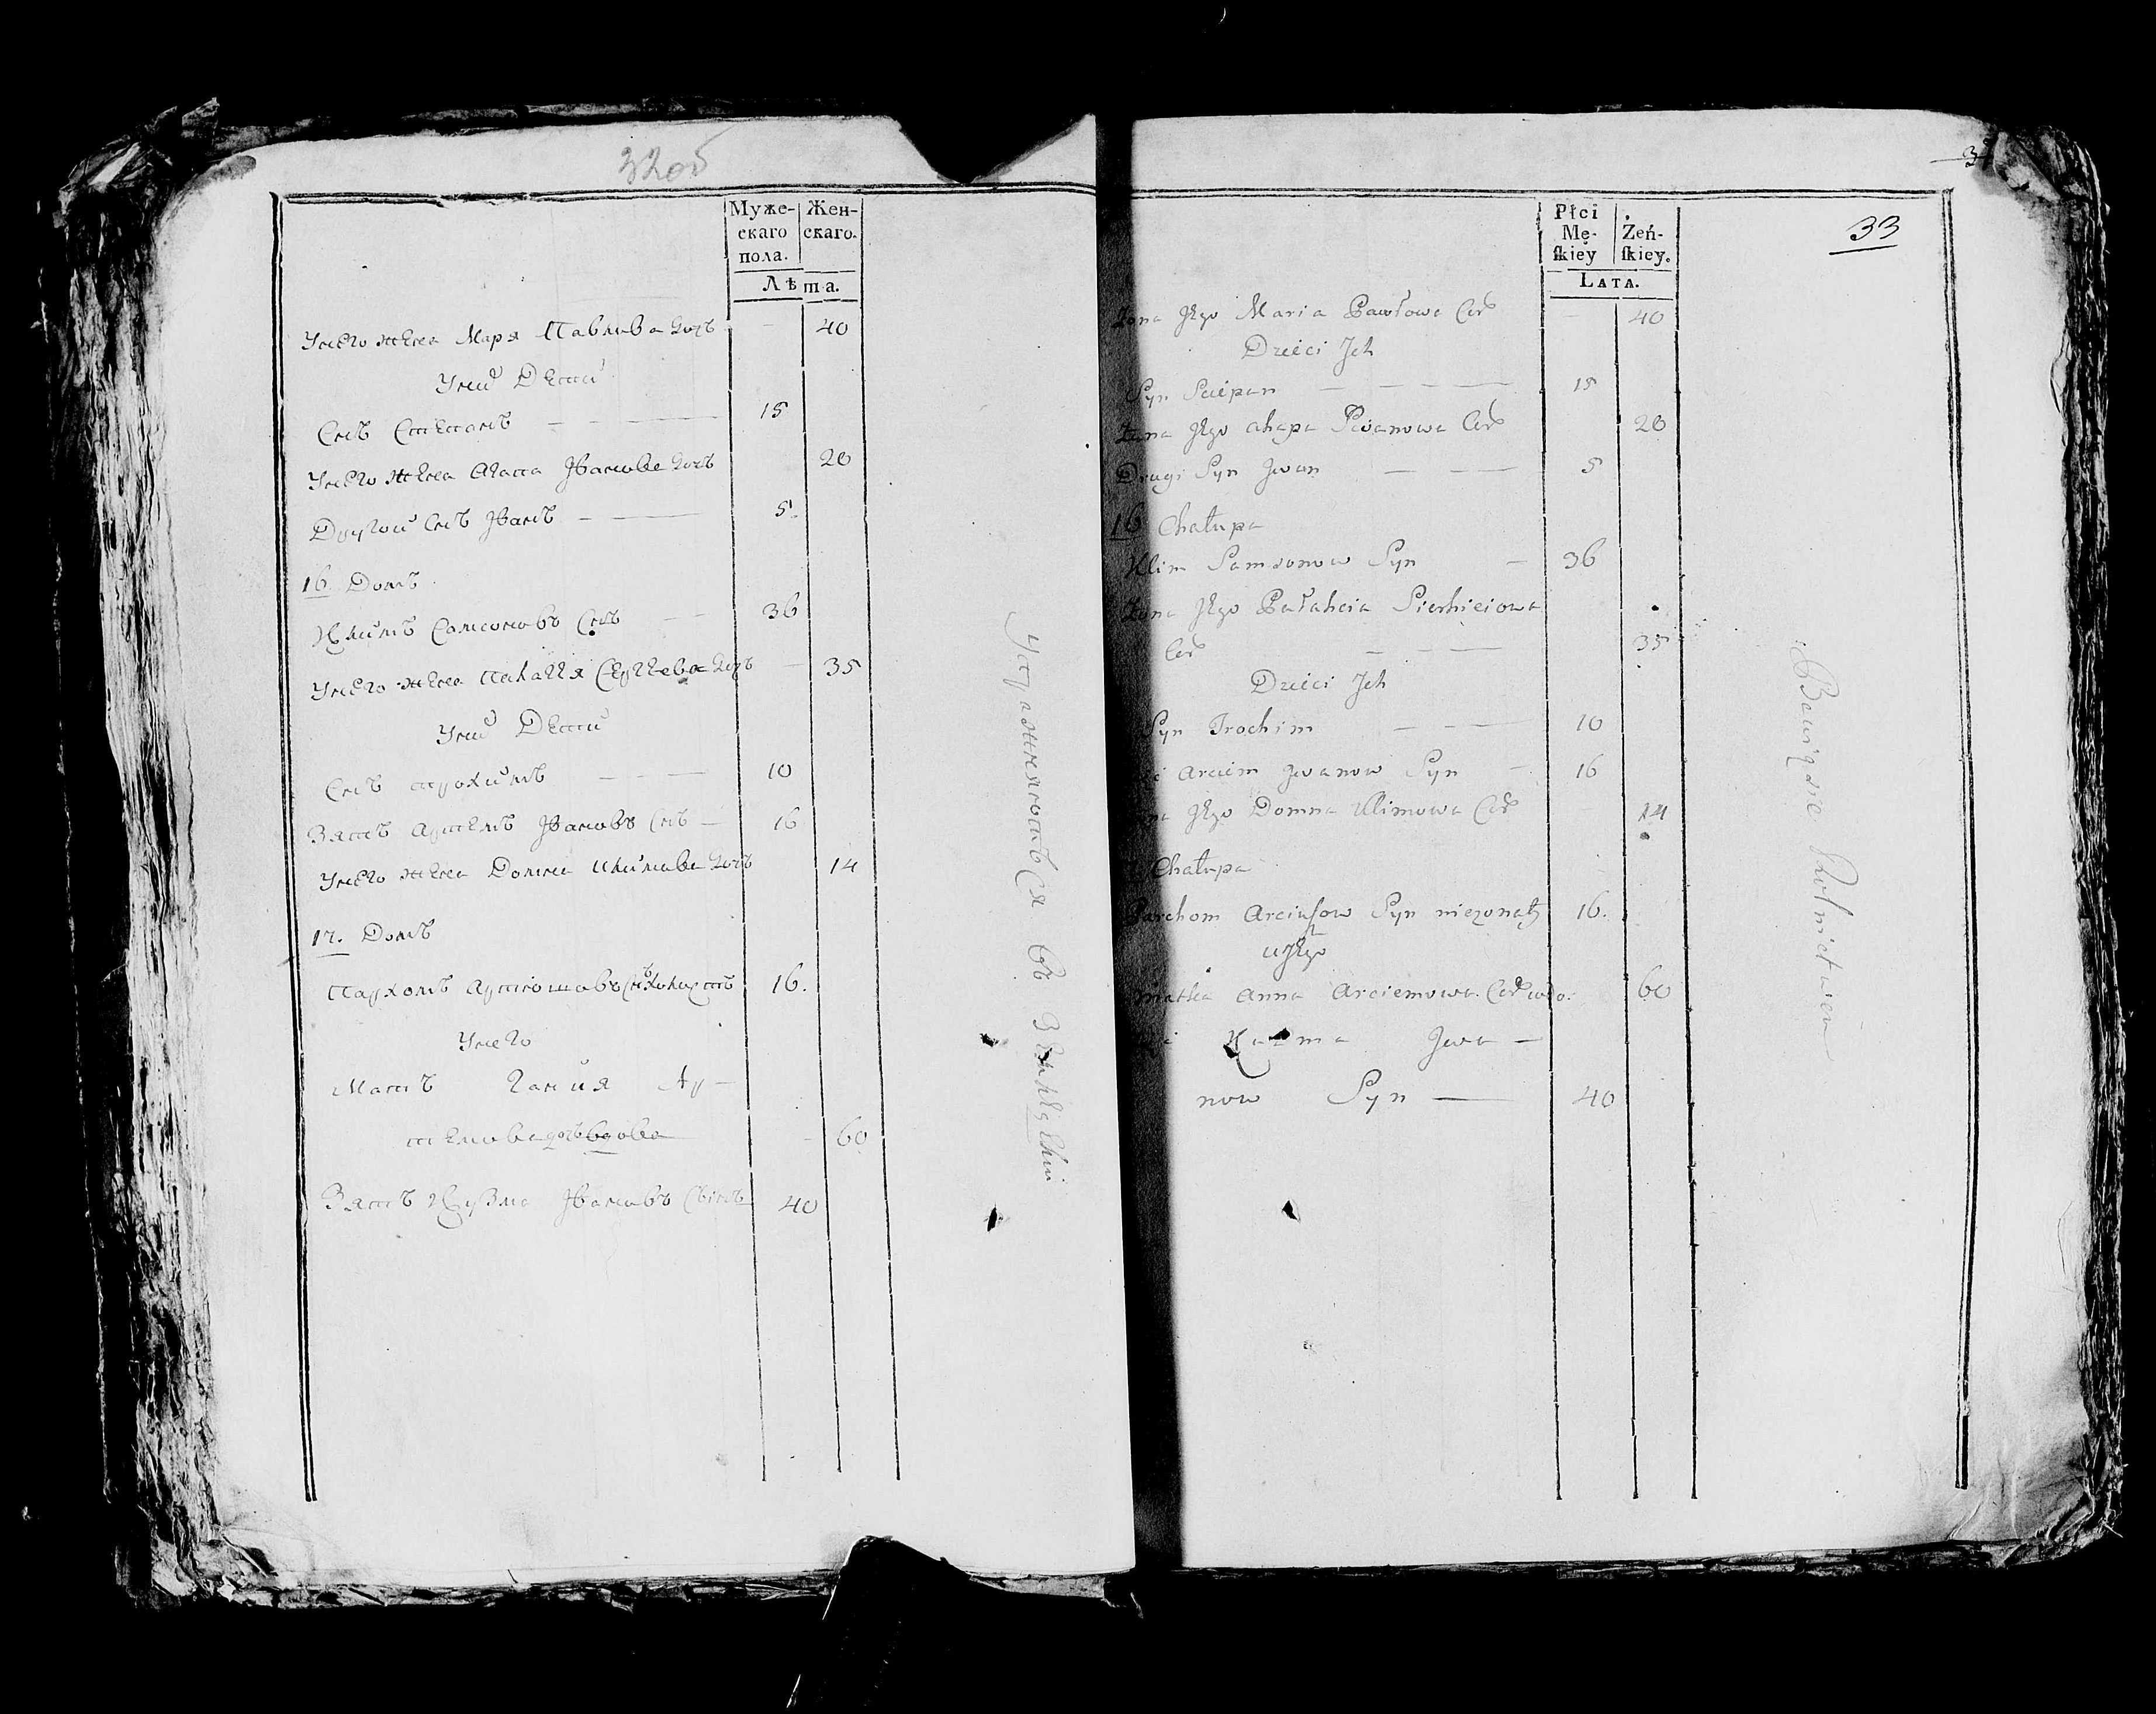 32об
Муже-
скаго
пола.
Жен-
скаго.
Лѣта.
Унего жена Маря Павлова дочъ 40
Уних Дети
Снъ Степанъ — — — 15
Унего жена Агапа Іванова дочъ 20
Другой Снъ Іванъ — — 5
16 Домъ
Климъ Самсоновъ Снъ — — 36
Унего жена Палагея Сергѣева дочъ — 35
Уних Дети
Снъ трохимъ — — — 10
Зять Артемъ Івановъ Снъ — 16
Унего жена Домна Климова дочъ 14
17. Домъ
Пархомъ Артюшовъ Снъ холостъ 16.
Унего
Мать Гания Ар—
темова дочъ вдова 60
Зять Кузма Івановъ Сынъ 40
Упражняютъся въ Земледелии
33
Płci
Mę-
ſkiey
Żeń-
ſkiey.
LATA.
Żona Jego Maria Pawłowa Cor 40
Dzieci Jch
Syn Sciepan — — — 15
Żona Jego Ahapa Jwanowa Cor 20
Drugi Syn Jwan — — 5
16 Chałupa
Klim Samsonow Syn — 36
Żona Jego Pałaheia Sierhieiowa
Cor — — — 35
Dzieci Jch
Syn Trochim — — 10
Arciem Jwanow Syn — 16
Jego Domna Klimowa Cor 14
Chałupa
Parchom Arciuſow Syn nieżonaty 16.
u Jego
Matka Anna Arciemowa Cor wdo. 60
Kuzma Jwa —
now Syn — 40
Bawiąsie Rolnictwem